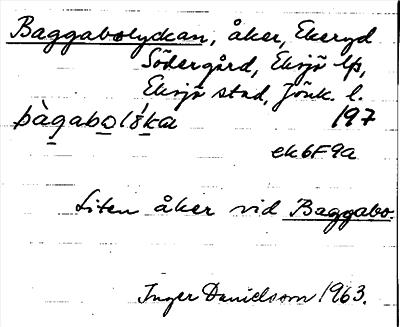 Baggabolyckan, åker, Ekeryd
Södergård, Eksjö lfs,
Eksjö stad, Jönk. l.
bàgabolỳka 197
ek6F9a
Liten åker vid Baggabo.
Inger Danielsson 1963.